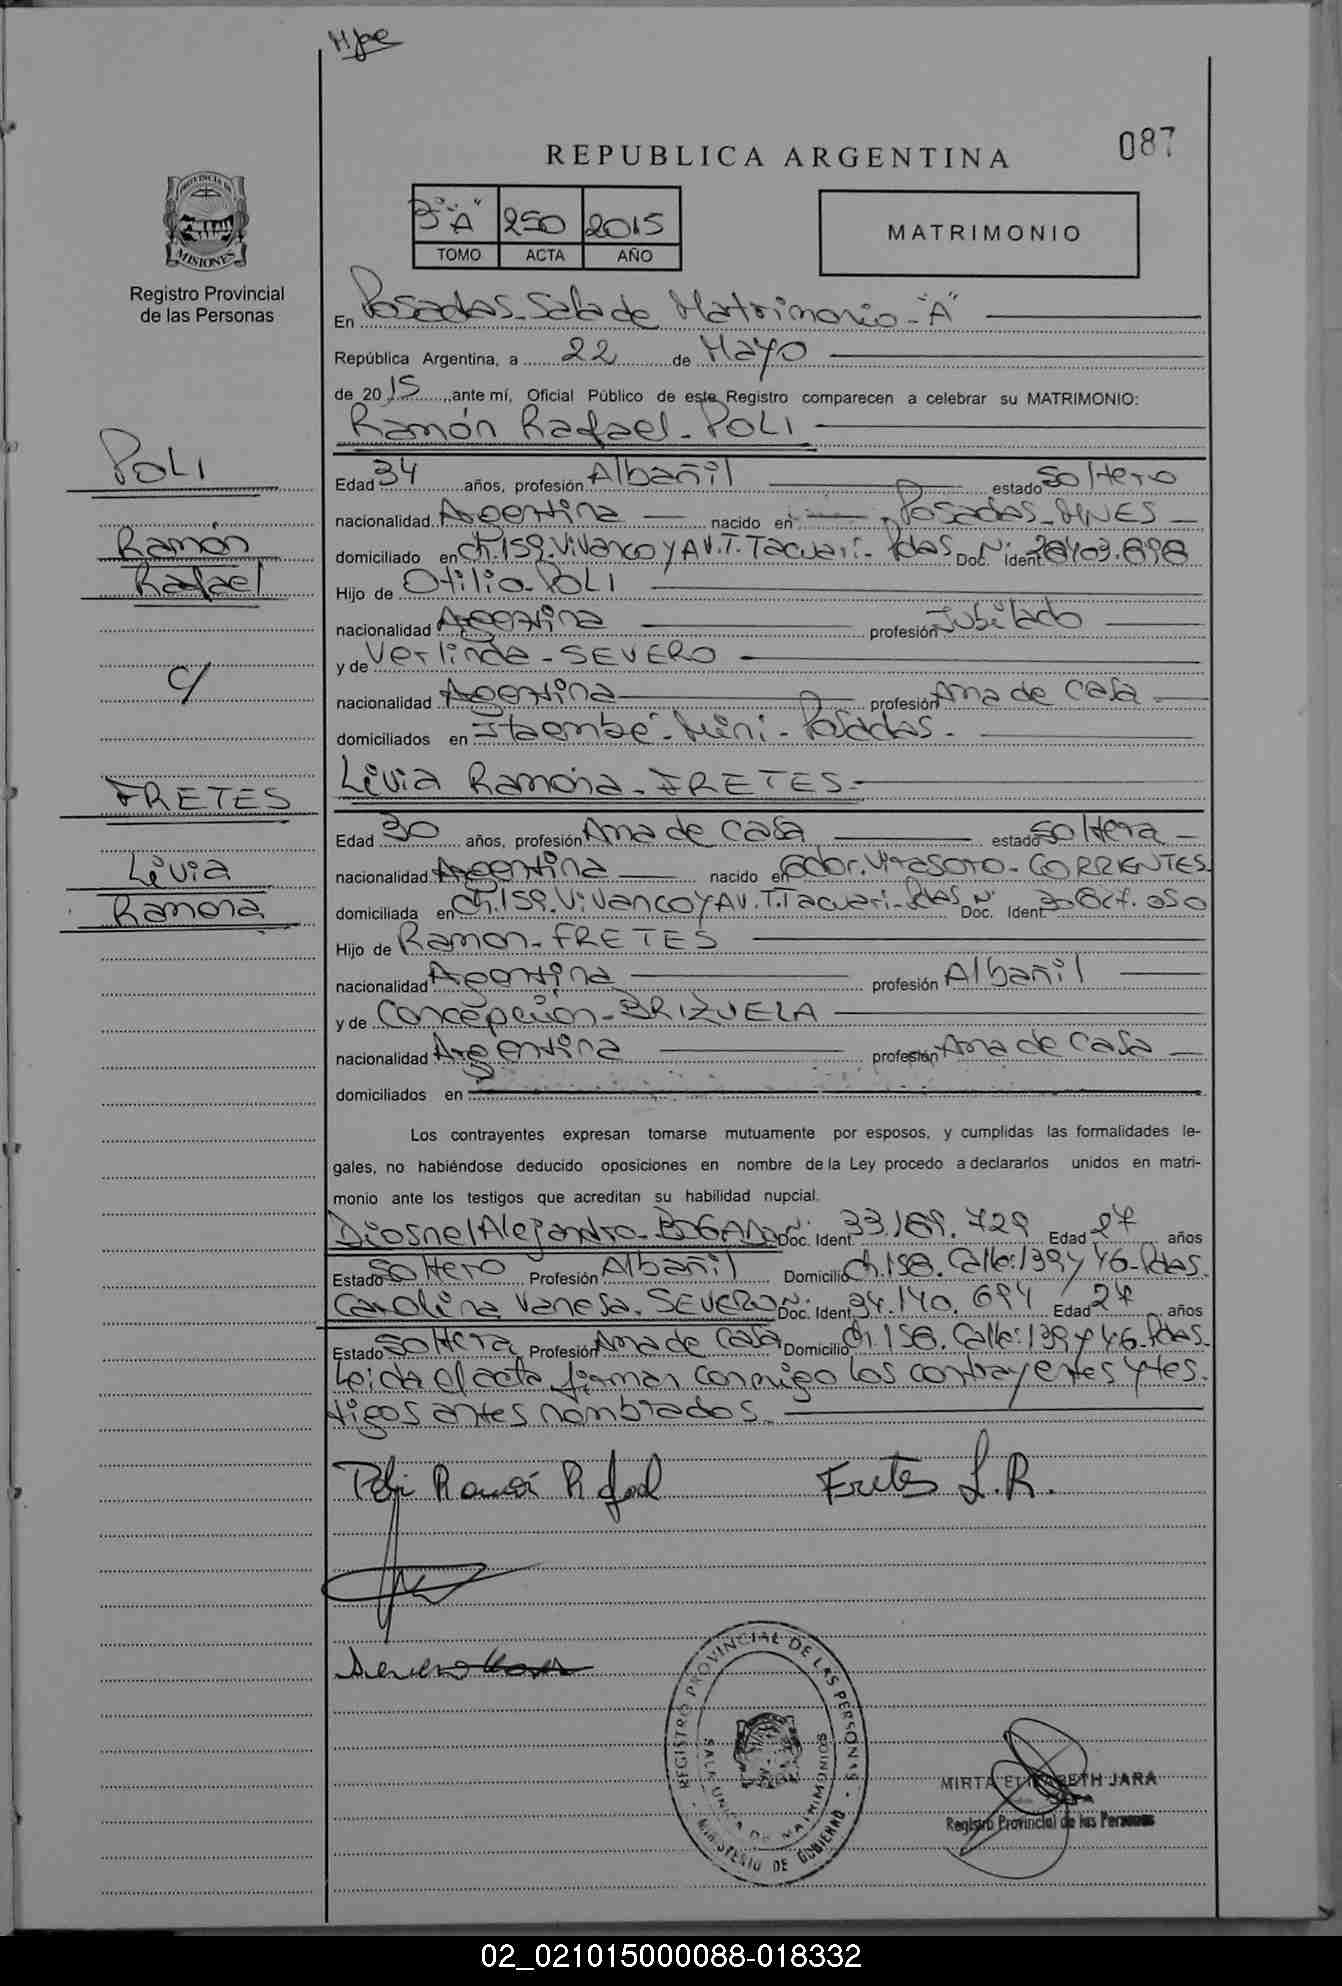 087
REPUBLICA ARGENTINA
3° "A" 250 2015
TOMO ACTA AÑO
MATRIMONIO
PROVINCIA DE MISIONES
Registro Provincial
de las Personas
En Posadas - Sala de Matrimonio - "A"
República Argentina, a 22 de Mayo
de 2015, ante mí, Oficial Público de este Registro comparecen a celebrar su MATRIMONIO:
Ramón Rafael - POLI
POLI
Ramón
Rafael
c/
FRETES
Livia
Ramona
Edad 34 años, profesión Albañil estado Soltero
nacionalidad Argentina nacido en Posadas - MNES
domiciliado en Ch. 159. Vivanco y AV. T. Tacuari - Pdas Doc. N° Ident. 28403.898
Hijo de Otilio - POLI
nacionalidad Argentina profesión Jubilado
y de Verlinda - SEVERO
nacionalidad Argentina profesión Ama de casa
domiciliados en Itaembé - Mini - Posadas.
Livia Ramona - FRETES
Edad 30 años, profesión Ama de casa estado Soltera
nacionalidad Argentina nacido en Gdor. Virasoro - CORRIENTES
domiciliada en Ch. 159. Vivanco y AV. T. Tacuari - Pdas N° Doc. Ident.
Hijo de Ramon - FRETES
nacionalidad Argentina profesión Albañil
y de Concepción - BRIZUELA
nacionalidad Argentina profesión Ama de casa
domiciliados en
Los contrayentes expresan tomarse mutuamente por esposos, y cumplidas las formalidades le-
gales, no habiéndose deducido oposiciones en nombre de la Ley procedo a declararlos unidos en matri-
monio ante los testigos que acreditan su habilidad nupcial.
Diosnel Alejandro - BOGADO N° Doc. Ident. 33.189.729 Edad 27 años
Estado Soltero Profesión Albañil Domicilio Ch. 158. Calle: 139 y 46 - Pdas.
Carolina Vanesa. SEVERO N° Doc. Ident. 34.140.694 Edad 27 años
Estado Soltera Profesión Ama de casa Domicilio Ch. 158. Calle: 139 y 46 - Pdas.
Leida el acta firman conmigo los contrayentes y tes-
tigos antes nombrados.
Poli Ramón Rafael Fretes L. R.
REGISTRO PROVINCIAL DE LAS PERSONAS - MINISTERIO DE GOBIERNO -
SALA UNICA DE MATRIMONIOS
MIRTA ELIZABETH JARA
Registro Provincial de las Personas
02_021015000088-018332